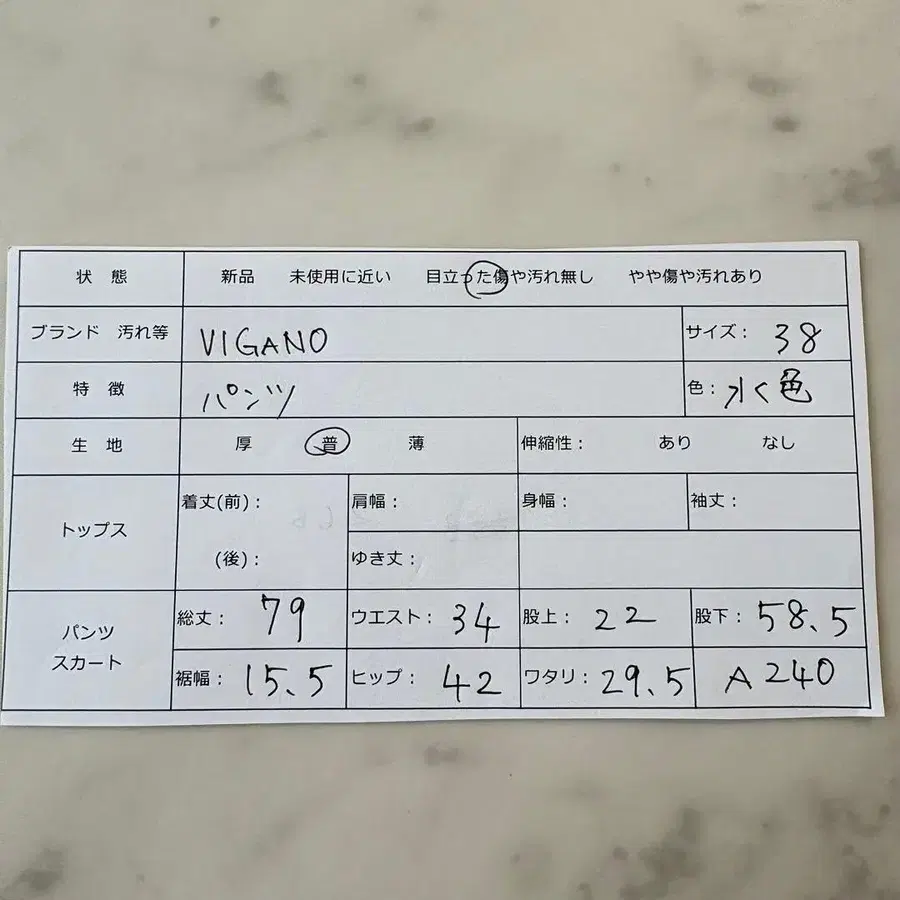 状 態 新品 未使用に近い 目立った傷や汚れ無し やや傷や汚れあり
ブランド 汚れ等 VIGANO サイズ: 38
特 徴 パンツ 色: 水く色
生 地 厚 普 薄 伸縮性: あり なし
トップス 着丈(前): 肩幅: 身幅: 袖丈:
(後): ゆき丈:
パンツ スカート 総丈: 79 ウエスト: 34 股上: 22 股下: 58.5
裾幅: 15.5 ヒップ: 42 ワタリ: 29.5 A240